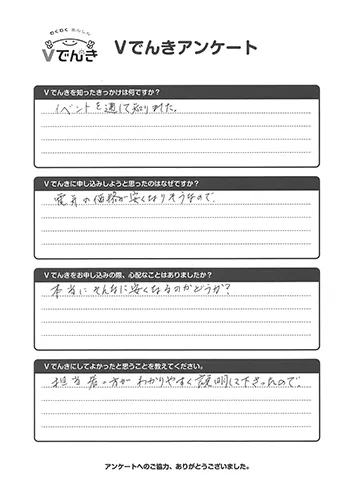 わくわく あんしん
Vでんき
Vでんきアンケート
Vでんきを知ったきっかけは何ですか?
イベントを通して知りました。
Vでんきに申し込みしようと思ったのはなぜですか?
電気の価格が安くなりそうなので。
Vでんきをお申し込みの際、心配なことはありましたか?
本当にそんなに安くなるのかどうか?
Vでんきにしてよかったと思うことを教えてください。
担当者の方がわかりやすく説明して下さったので。
アンケートへのご協力、ありがとうございました。